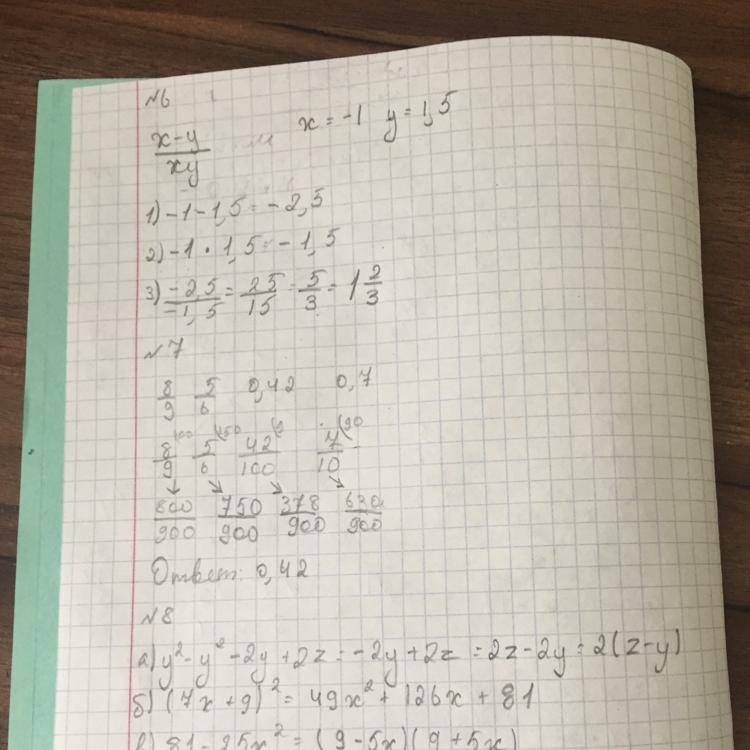 №6
x-y/xy x = -1 y = 1,5
1) -1 - 1,5 = -2,5
2) -1 · 1,5 = -1,5
3) -2,5/-1,5 = 25/15 = 5/3 = 1 2/3
№7
8/9 5/6 0,42 0,7
8/9 (100 5/6 (150 42/100 (9 7/10 (90
800/900 750/900 378/900 630/900
Ответ: 0,42
№8
а) y² - y² - 2y + 2z = -2y + 2z = 2z - 2y = 2(z-y)
б) (7x + 9)² = 49x² + 126x + 81
в) 81 - 25x² = (9 - 5x)(9 + 5x)